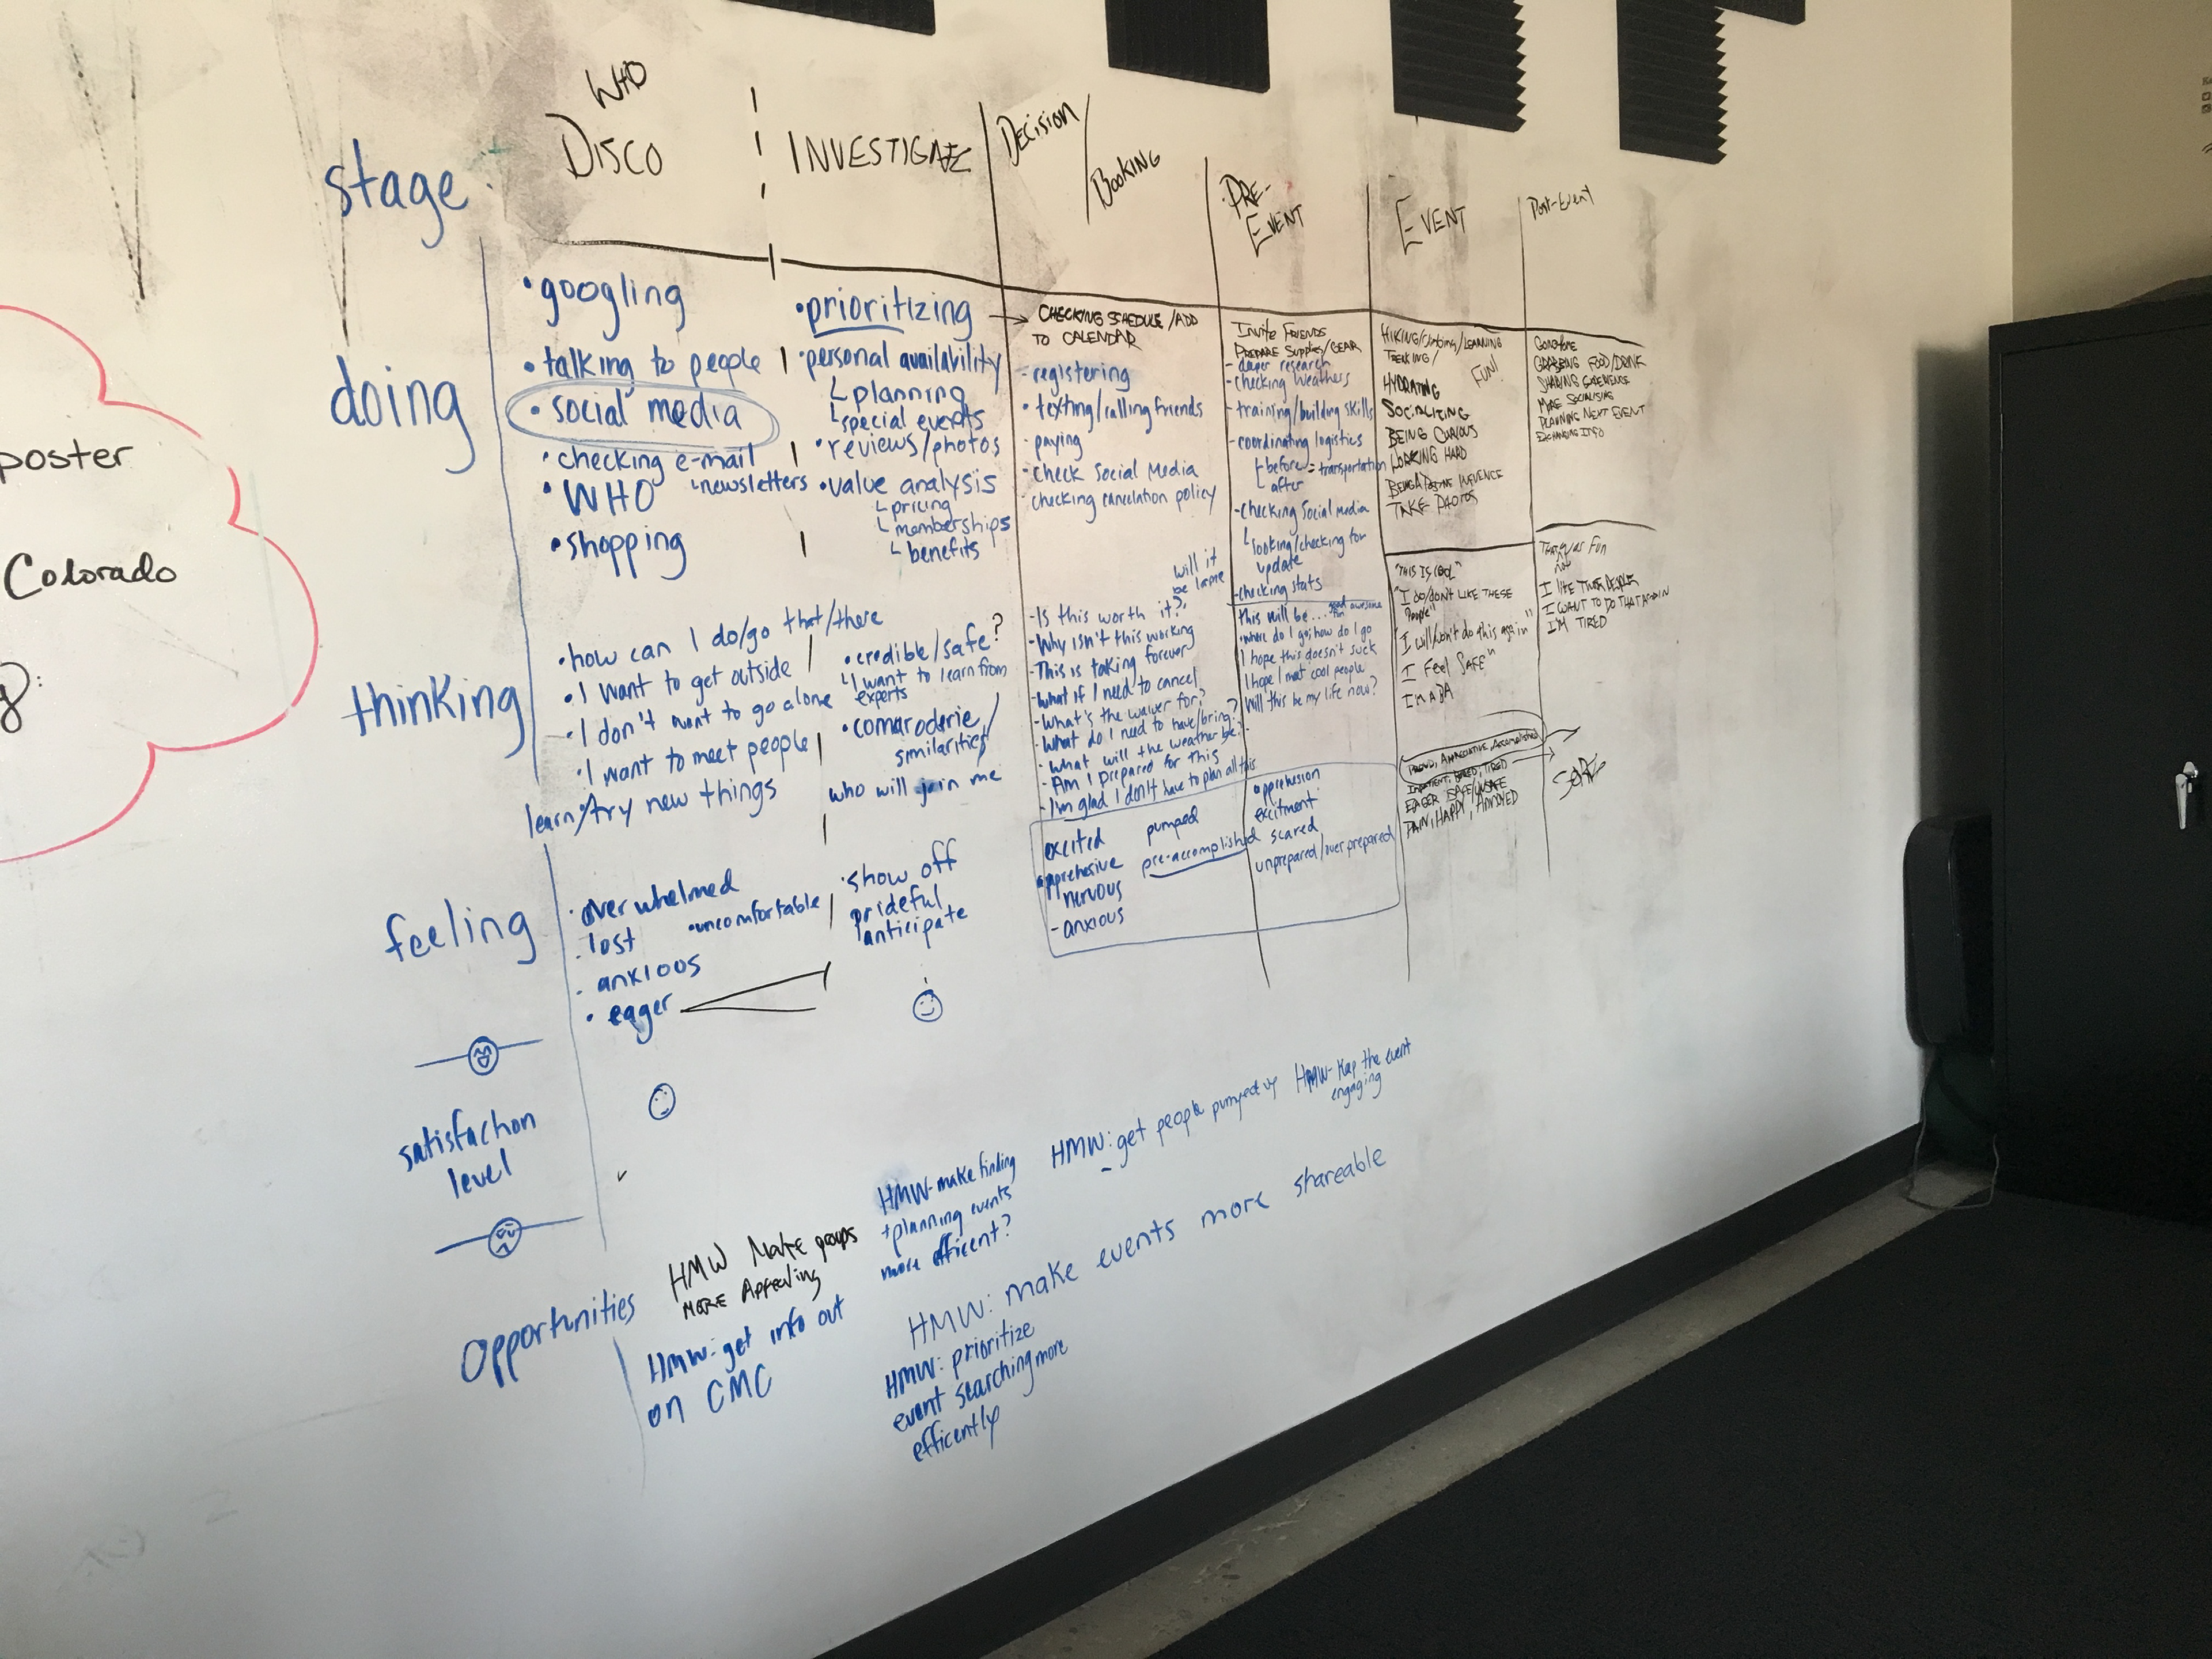 poster
Colorado
stage
WHO
DISCO
INVESTIGATE
DECISION
/
BOOKING
PRE-
EVENT
EVENT
Post-Event
doing
• googling
• talking to people
• social media
• checking e-mail
newsletters
• WHO
• shopping
• prioritizing
• personal availability
planning
special events
• reviews/photos
• value analysis
pricing
memberships
benefits
CHECKING SCHEDULE/ADD
TO CALENDAR
- registering
• texting/calling friends
- paying
- check Social Media
- checking cancelation policy
INVITE FRIENDS
PREPARE SUPPLIES/GEAR
- deeper research
- checking weathers
- training/building skills
- coordinating logistics
before = transportation
after
- checking social media
looking/checking for
update
- checking stats
HIKING/climbing/LEARNING
TREKING/
FUN!
HYDRATING
SOCIALIZING
BEING CURIOUS
WORKING HARD
BEING A POSITIVE INFLUENCE
TAKE PHOTOS
GOING HOME
GRABBING FOOD/DRINK
SHARING EXPERIENCE
MORE SOCIALISING
PLANNING NEXT EVENT
EXCHANGING INFO
thinking
• how can I do/go that/there
• I want to get outside
• I don't want to go alone
• I want to meet people
learn/try new things
• credible/safe?
I want to learn from
experts
• comaroderie/
similarities
who will join me
will it
be lame
- Is this worth it?
- Why isn't this working
- This is taking forever
- what if I need to cancel
- What's the waiver for?
- What do I need to have/bring?
- What will the weather be?
- Am I prepared for this
- I'm glad I don't have to plan all this
this will be... good awesome
fun
• where do I go; how do I go
I hope this doesn't suck
I hope I meet cool people
Will this be my life now?
"THIS IS COOL"
"I DO/DON'T LIKE THESE
People"
"I will/won't do this again"
"I Feel SAFE"
I'M A BA
That was Fun
not
I LIKE THESE PEOPLE
I WANT TO DO THAT AGAIN
I'M TIRED
feeling
• overwhelmed
• uncomfortable
- lost
- anxious
• eager
• show off
prideful
anticipate
excited
pumped
• apprehesive
pre-accomplished
nervous
- anxious
• apprehension
excitment
scared
unprepared/over prepared
PROUD, APPRECIATIVE, Accomplished
IMPATIENT, BORED, TIRED
EAGER SAFE/UNSAFE
PAIN, HAPPY, ANNOYED
SORE
satisfaction
level
opportunities
HMW Make groups
MORE Appealing
HMW: get info out
on CMC
HMW- make finding
+ planning events
more efficent?
HMW: get people pumped up
HMW- Keep the event
engaging
HMW: make events more shareable
HMW: prioritize
event searching more
efficently